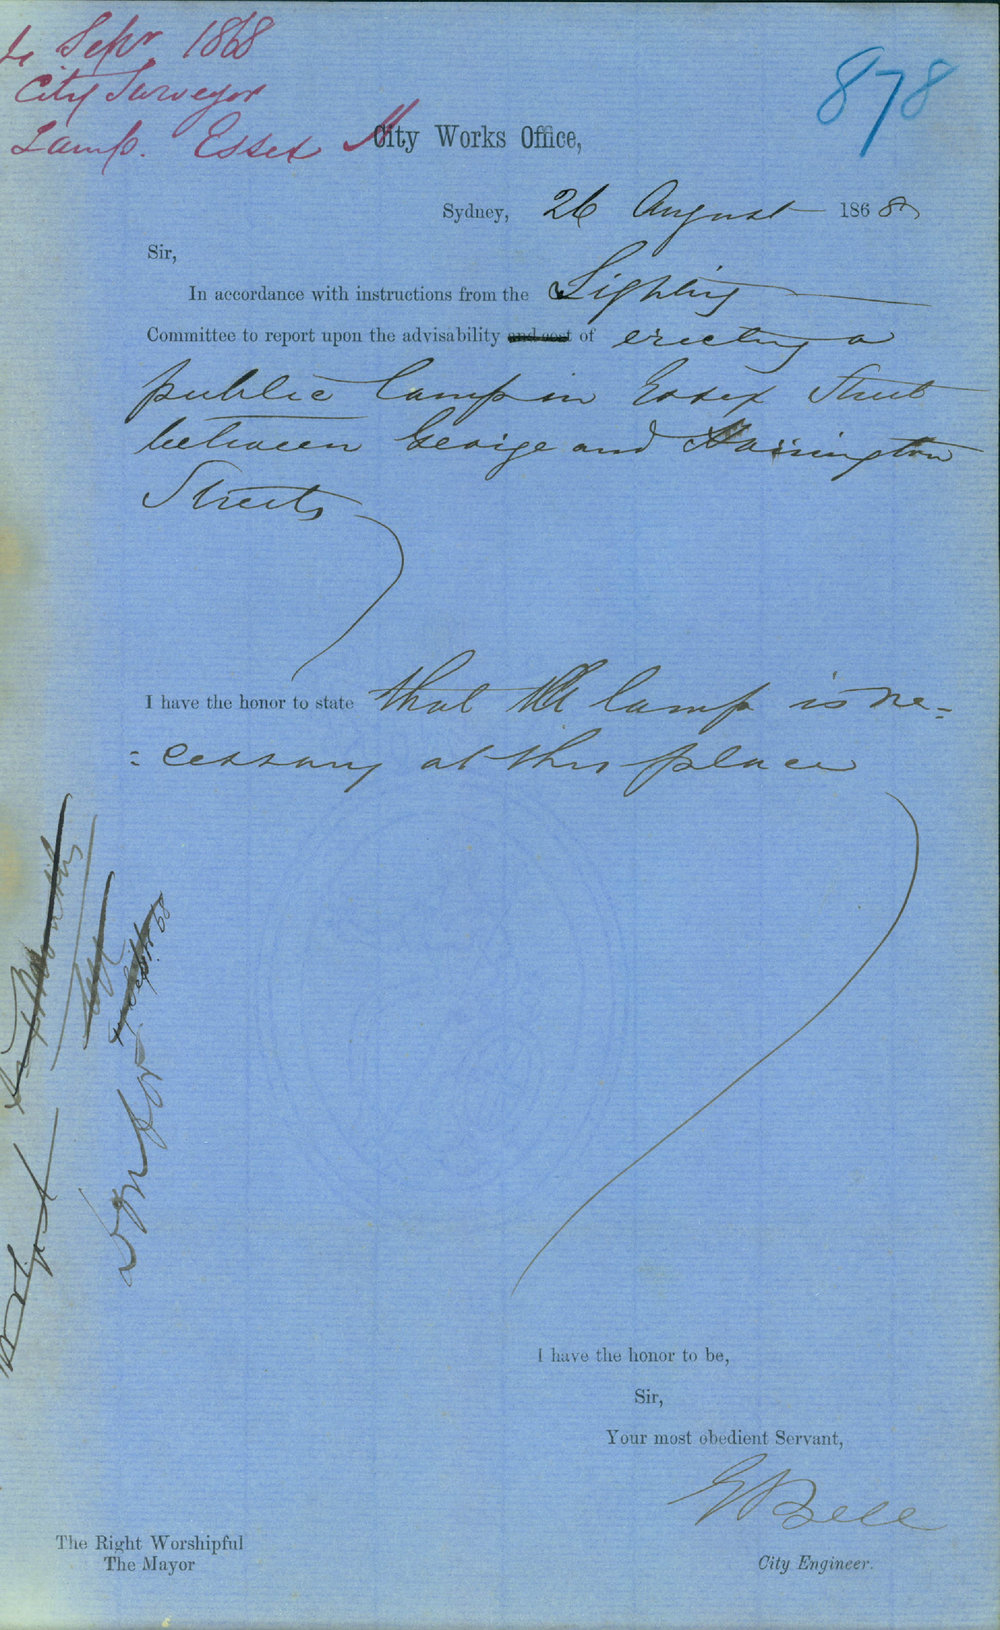 Sepr 1868
City Surveyor
Lamp. Essex St
878
City Works Office,
Sydney, 26 August 1868
Sir,
In accordance with instructions from the Lighting
Committee to report upon the advisability and cost of erecting a
public lamp in Essex Street
between George and Harrington
Streets
I have the honor to state that the lamp is ne-
=cessary at this place
I have the honor to be,
Sir,
Your most obedient Servant,
EBell
City Engineer.
The Right Worshipful
The Mayor